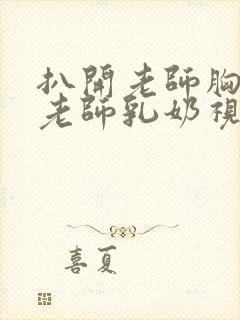 扒開老師胸
老師乳奶視
喜夏